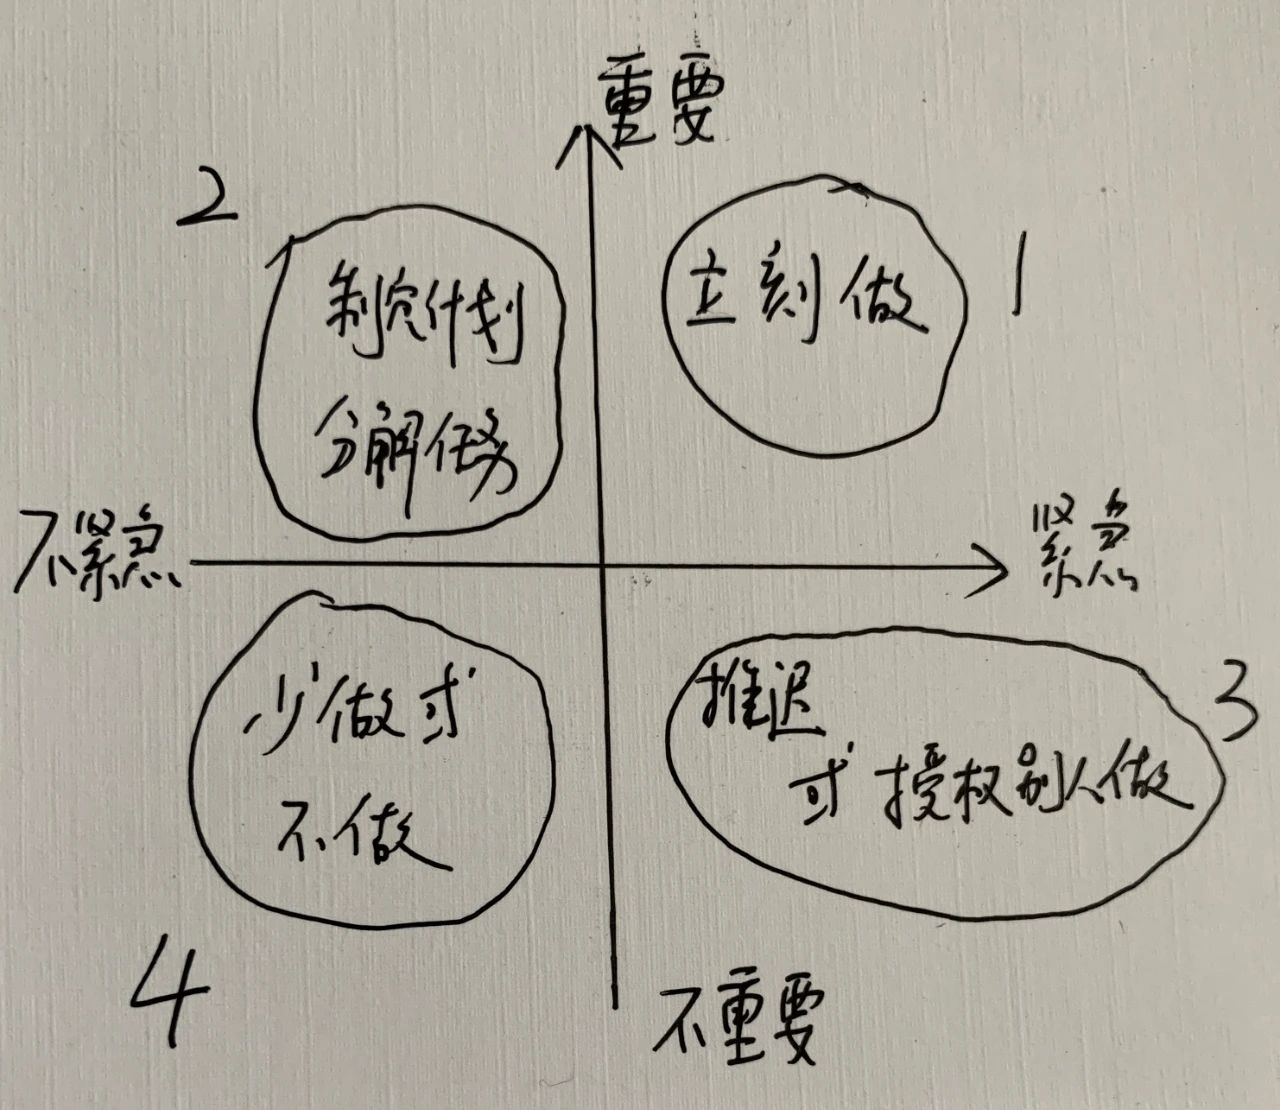 重要
2
制定计划
分解任务
立刻做
1
不紧急
紧急
少做或
不做
推迟
或授权别人做
3
4
不重要